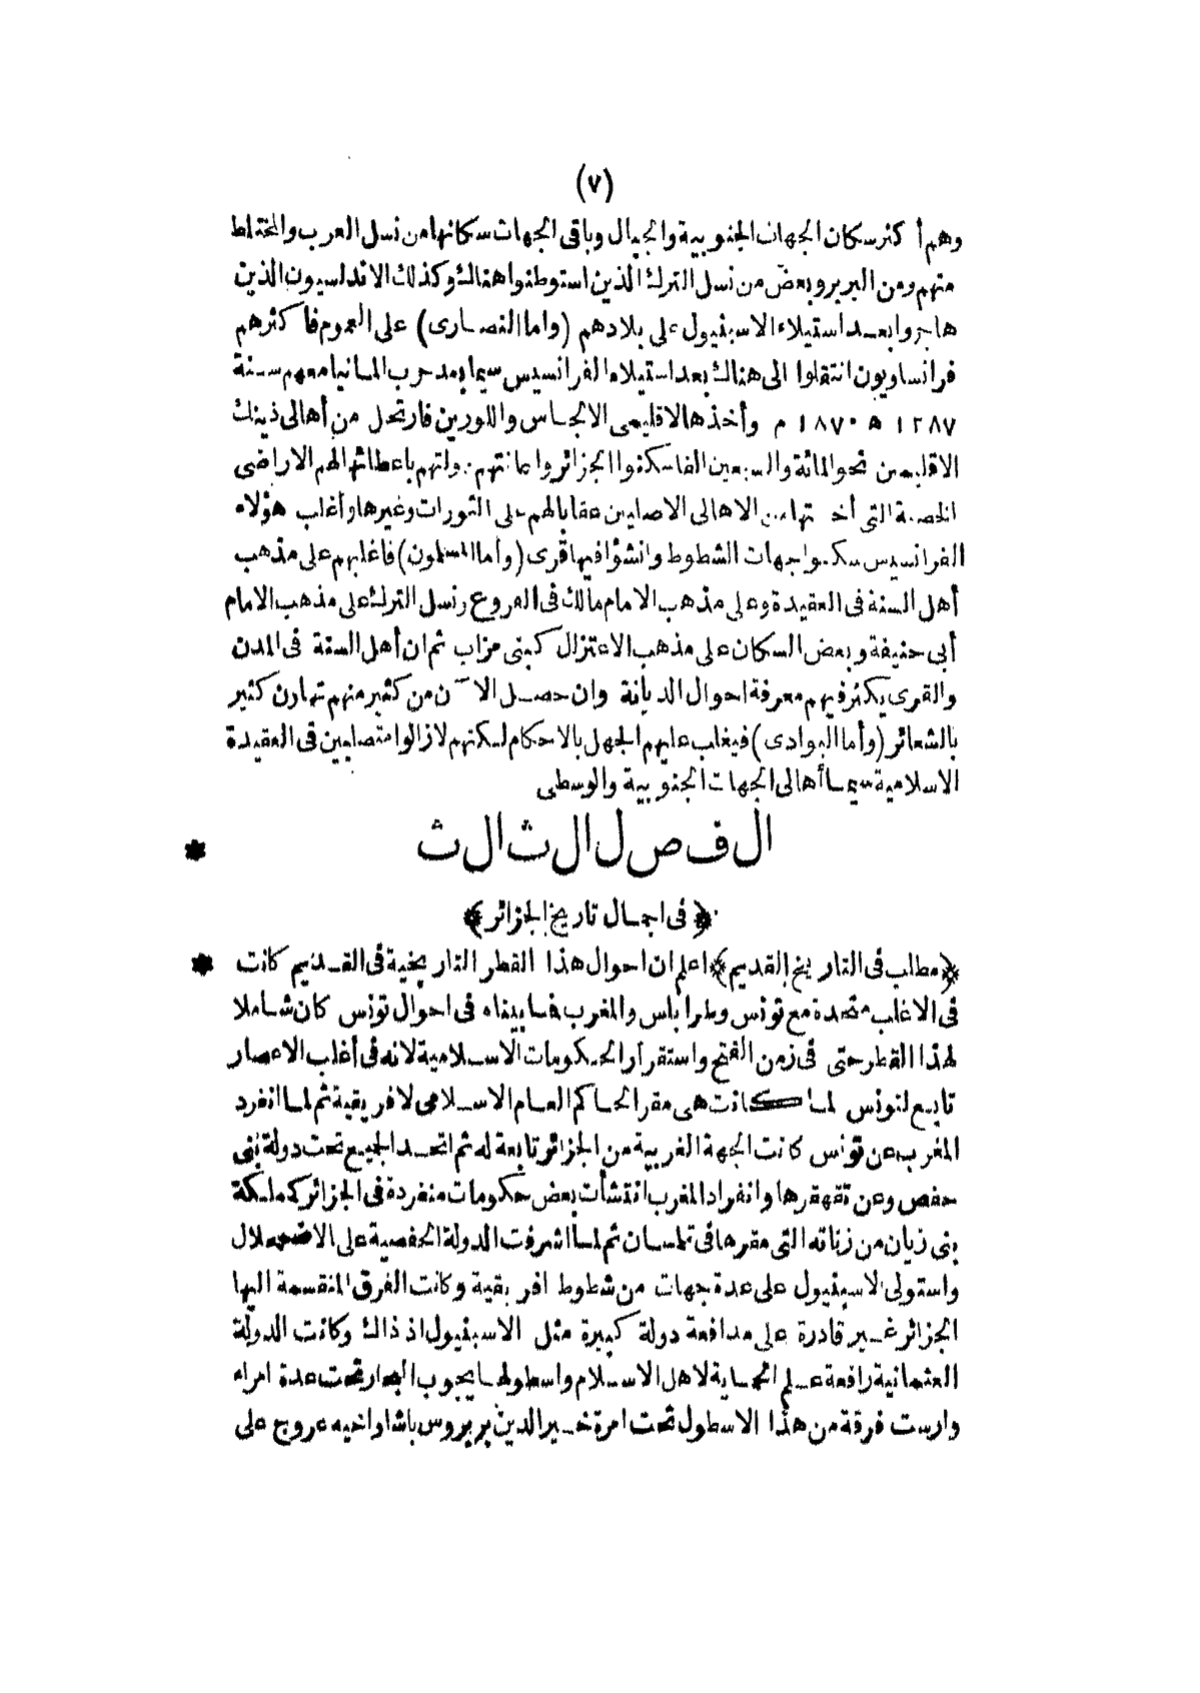 (٧)
وهم أكثر سكان الجهات الجنوبية والجبال وباقى الجهات سكانها من نسل العرب والمختلط
منهم ومن البربر وبعض من نسل الترك الذين استوطنوا هنالك وكذلك الاندلسيون الذين
هاجروا بعد استيلاء الاسبنيول على بلادهم (واما النصارى) على العموم فاكثرهم
فرانساويون انتقلوا الى هناك بعد استيلاء الفرانسيس سيما بعد حرب المانيا معهم سنة
١٢٨٧ ه ١٨٧٠ م وأخذها لاقليمى الالجاس واللورين فارتحل من أهالى ذينك
الاقليمين نحو المائة والسبعين الفا سكنوا الجزائر واعانتهم دولتهم باعطائها لهم الاراضى
الخصبة التى أخذتها من الاهالى الاصليين عقابا لهم على الثورات وغيرها وأغلب هؤلاء
الفرانسيس سكنوا جهات الشطوط وانشؤا فيها قرى (وأما المسلمون) فاغلبهم على مذهب
أهل السنة فى العقيدة وعلى مذهب الامام مالك فى الفروع ونسل الترك على مذهب الامام
أبى حنيفة وبعض السكان على مذهب الاعتزال كبنى مزاب ثم ان أهل السنة فى المدن
والقرى يكثر فيهم معرفة احوال الديانة وان حصل الآن من كثير منهم تهاون كثير
بالشعائر (وأما البوادى) فيغلب عليهم الجهل بالاحكام لكنهم لا زالوا متصلبين فى العقيدة
الاسلامية سيما أهالى الجهات الجنوبية والوسطى
الفصل الثالث *
﴿فى اجمال تاريخ الجزائر﴾
﴿مطلب فى التاريخ القديم﴾ اعلم ان احوال هذا القطر التاريخية فى القديم كانت *
فى الاغلب متحدة مع تونس وطرابلس والمغرب فما بيناه فى احوال تونس كان شاملا
لهذا القطر حتى فى زمن الفتح واستقرار الحكومات الاسلامية لانه فى أغلب الاعصار
تابع لتونس لما كانت هى مقر الحاكم العام الاسلامى لافريقية ثم لما انفرد
المغرب عن تونس كانت الجهة الغربية من الجزائر تابعة له ثم اتحد الجميع تحت دولة بنى
حفص وعن تقهقرها وانفراد المغرب انتشأت بعض حكومات منفردة فى الجزائر كمملكة
بنى زيان من زناته التى مقرها فى تلمسان ثم لما اشرفت الدولة الحفصية على الاضمحلال
واستولى الاسبنيول على عدة جهات من شطوط افريقية وكانت الفرق المنقسمة اليها
الجزائر غير قادرة على مدافعة دولة كبيرة مثل الاسبنيول اذ ذاك وكانت الدولة
العثمانية رافعة علم الحماية لاهل الاسلام واسطولها يجوب البحار تحت عدة امراء
وارست فرقة من هذا الاسطول تحت امرة خير الدين بربروس باشا واخيه عروج على